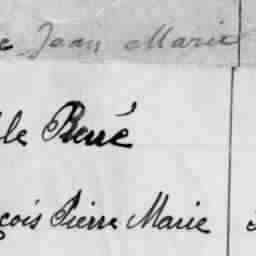 Jean Marie
le Berré
çois Pierre Marie